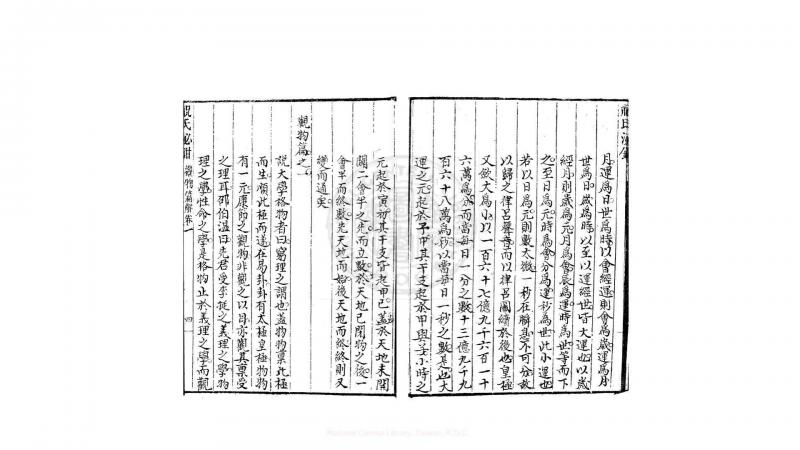 月運爲日世爲時以會經運則會爲歲運爲月
世爲日歲爲時以至以運經世皆大運也以歲
經月則歲爲元月爲會辰爲運時爲世等而下
之至日爲元時爲會分爲運秒爲世此小運也
若以日爲元則數太微一秒在瞬息不可分故
以歸之律呂聲音而以律呂圖續於後也皇極
又斂大爲小以一百六十七億九千六百一十
六萬爲分而當每日一分之數十三億九千九
百六十八萬爲秒以當每日一秒之數是也大
運之元起於子甲其干支起於甲與壬小時之
元起於寅初其干支皆起甲巳蓋於天地未開
闢二會半之先而立數於天地已閉物之後一
會半而終數先天地而始後天地而終終則又
變而通矣
觀物篇之一
說大學格物者曰窮理之謂也蓋物物稟此極
而生願此極而遂在易卦卦有太極皇極物物
有一元康節之觀物非觀之以目亦觀其稟受
之理耳邵伯溫曰先君受李挺之義理之學物
理之學性命之學是格物止於義理之學而觀
祝氏秘鉗 觀物篇解卷一 四